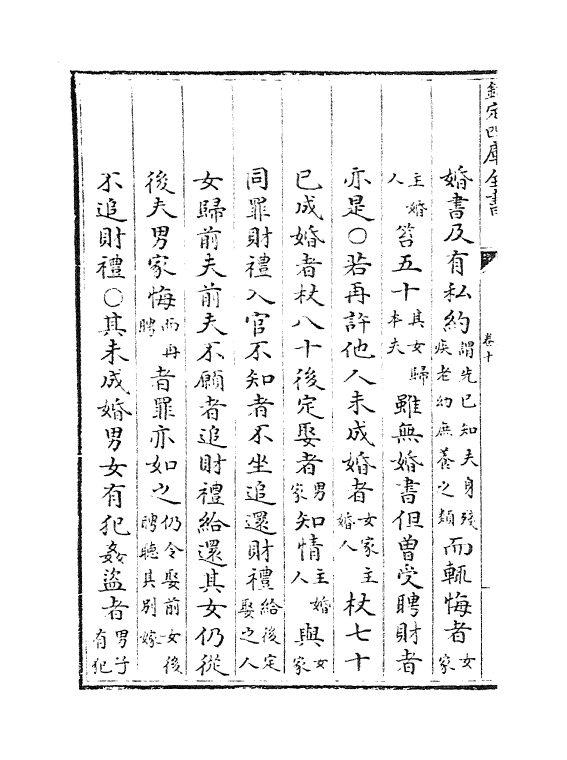 欽定四庫全書
卷十
婚書及有私約謂先已知夫身殘疾老幼庶養之類而輒悔者女家
主婚人笞五十其女歸本夫雖無婚書但曾受聘財者
亦是○若再許他人未成婚者女家主婚人杖七十
已成婚者杖八十後定娶者男家知情主婚人與女家
同罪財禮入官不知者不坐追還財禮給後定娶之人
女歸前夫前夫不願者追財禮給還其女仍從
後夫男家悔而再聘者罪亦如之仍令娶前女後聘聽其別嫁
不追財禮○其未成婚男女有犯姦盜者男子有犯